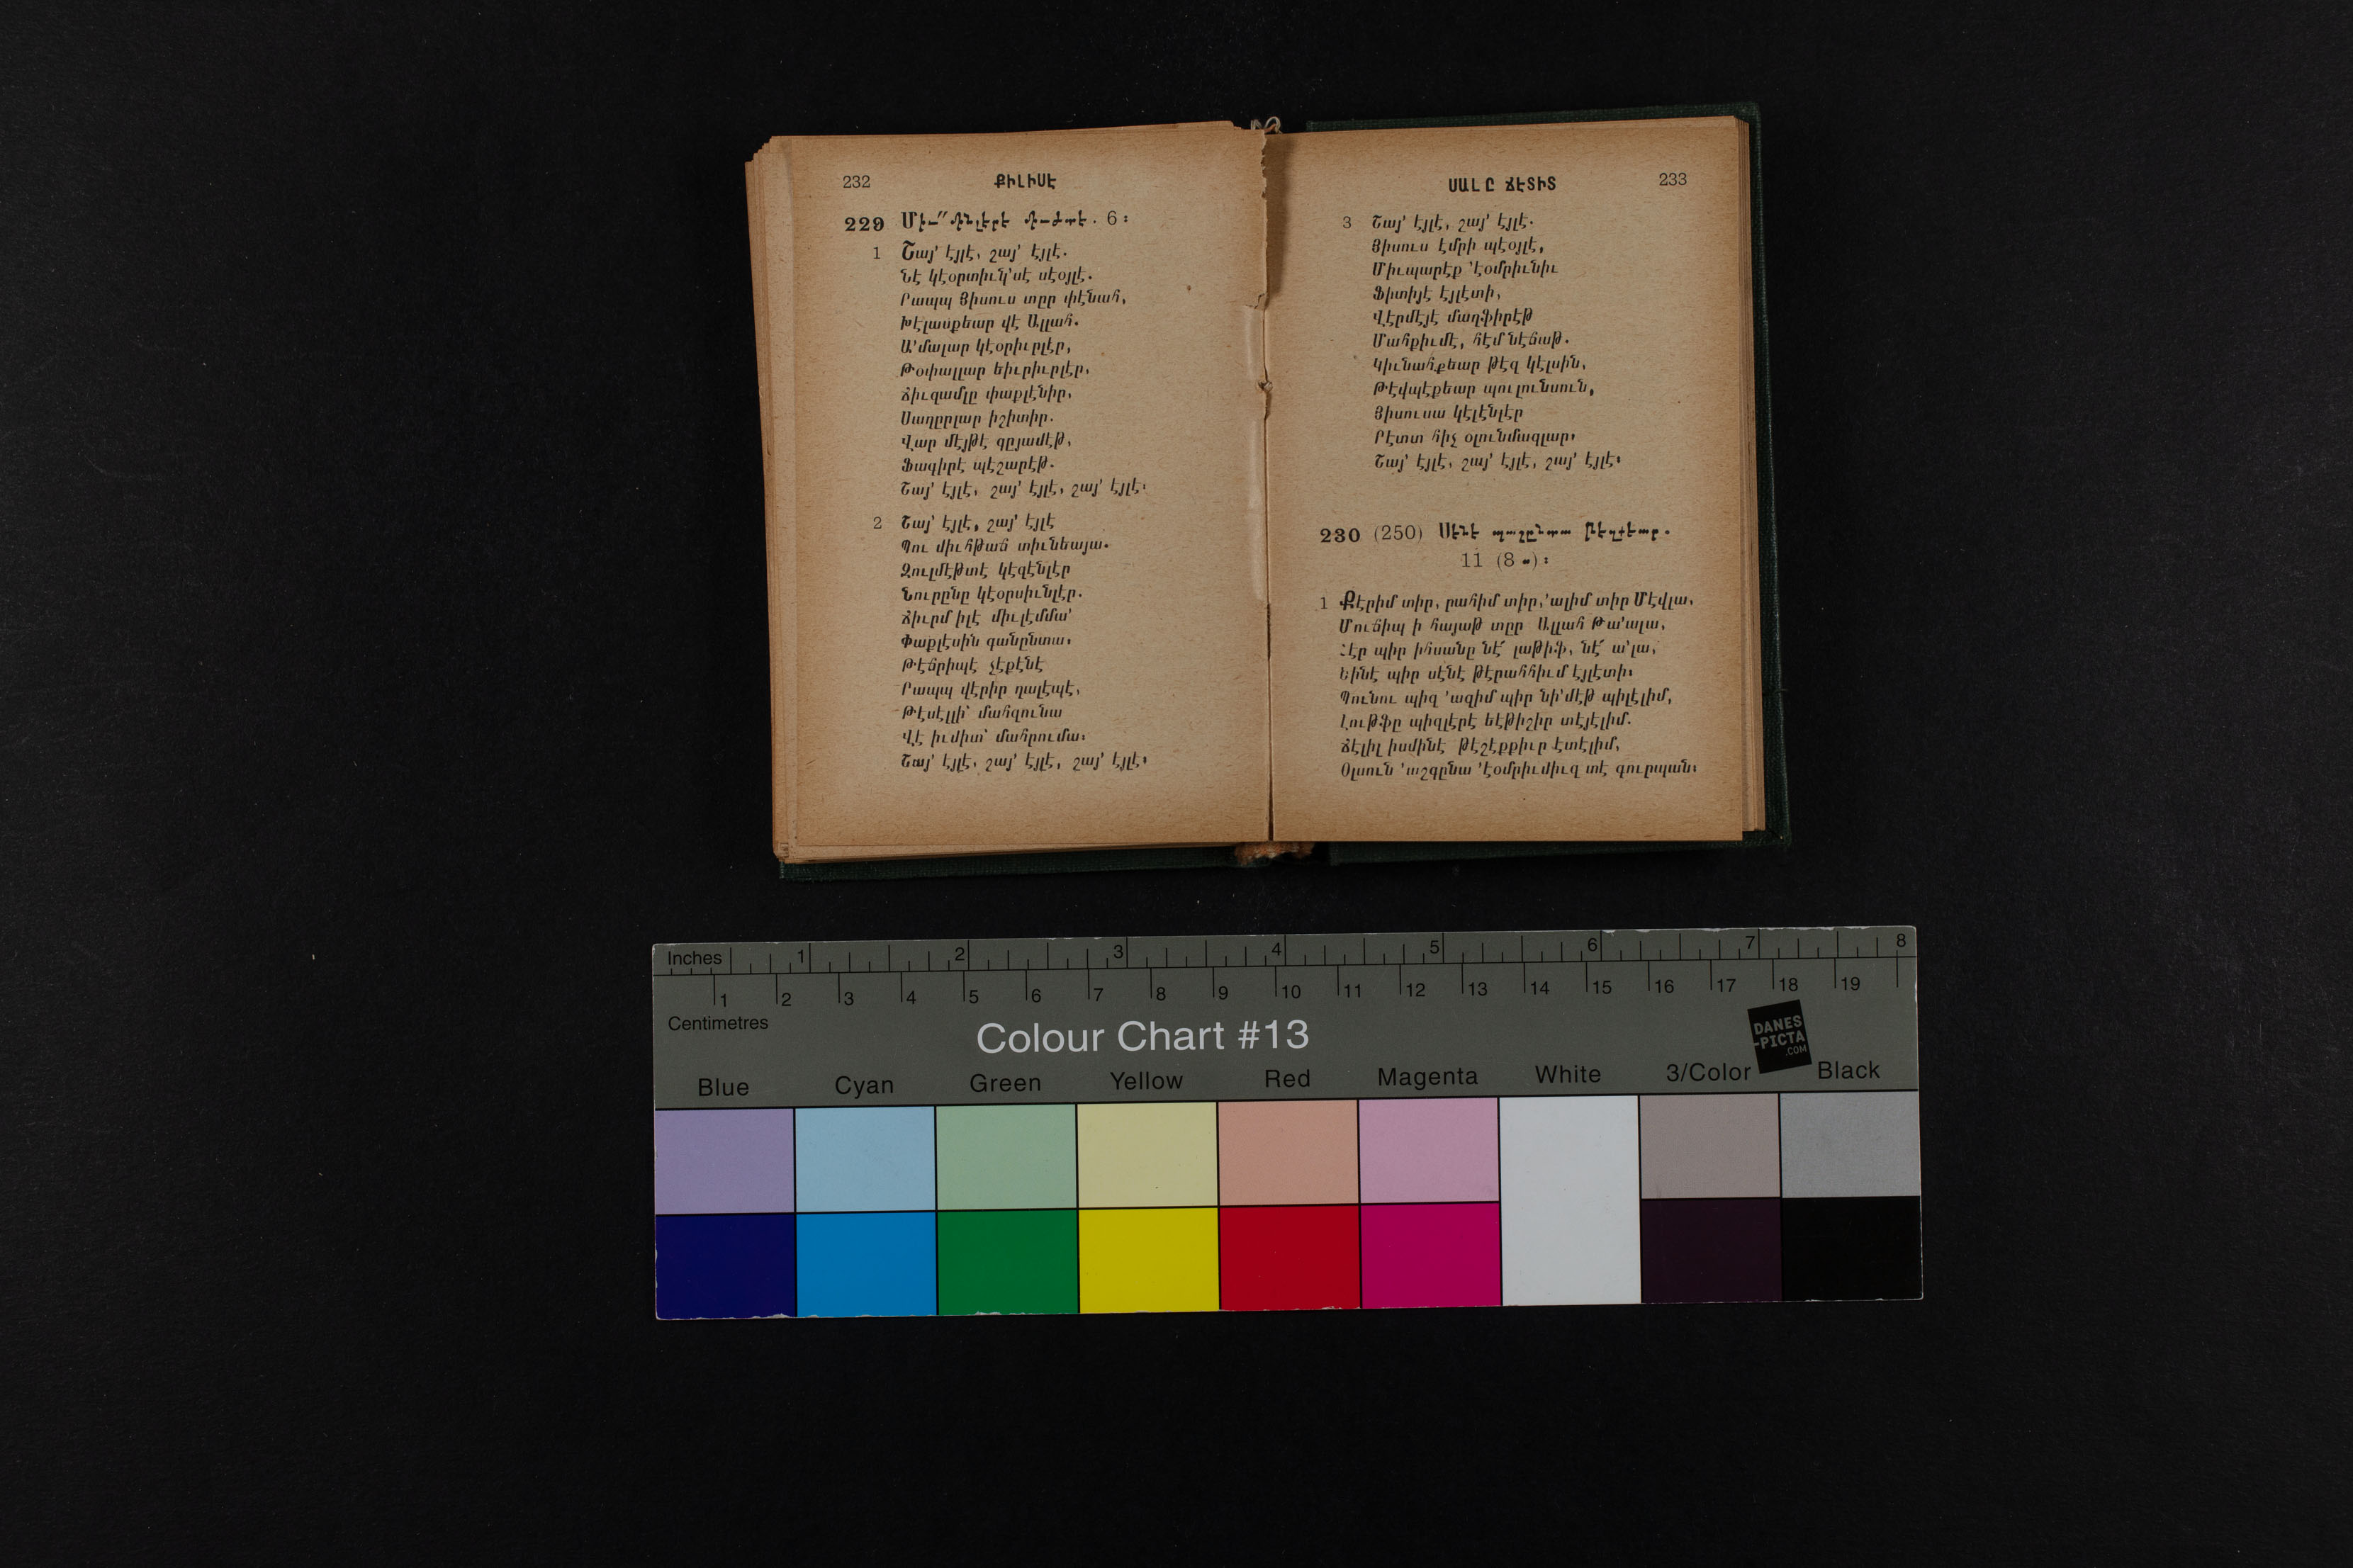 232
ՔԻԼԻՍԷ
229
6 ։
1 Շայ՚ էյլէ, շայ՚ էյլէ.
Նէ կէօրտիւն՚սէ սէօյլէ.
Րապպ Յիսուս տըր փէնահ,
Խէլասքեար վէ Ալլահ.
Ա՚մալար կէօրիւրլէր,
Թօփալլար եիւրիւրլէր,
Ճիւզամլը փաքլէնիր,
Սաղըրլար իշիտիր.
Վար մէյթէ գըյամէթ,
Ֆագիրէ պէշարէթ.
Շայ՚ էյլէ, շայ՚ էյլէ, շայ՚ էյլէ։
2 Շայ՚ էյլէ, շայ՚ էյլէ
Պու միւհթաճ տիւնեայա.
Զուլմէթտէ կէզէնլէր
Նուրընը կէօրսիւնլէր.
Ճիւրմ իլէ միւլէմմա՚
Փաքլէսին գանընտա։
Թէճրիպէ չէքէնէ
Րապպ վէրիր ղալէպէ,
Թէսէլլի՝ մահզունա
Վէ իւմիտ՝ մահրումա։
Շայ՚ էյլէ, շայ՚ էյլէ, շայ՚ էյլէ։
ՍԱԼԸ ՃԷՏԻՏ
233
3 Շայ՚ էյլէ, շայ՚ էյլէ.
Յիսուս էմրի պէօյլէ,
Միւպարէք ՚էօմրիւնիւ
Ֆիտիյէ էյլէտի,
Վէրմէյէ մաղֆիրէթ
Մահքիւմէ, հէմ նէճաթ.
Կիւնահքեար թէզ կէլսին,
Թէվպէքեար պուլունսուն,
Յիսուսա կէլէնլէր
Րէտտ հիչ օլունմազլար։
Շայ՚ էյլէ, շայ՚ էյլէ, շայ՚ էյլէ։
230 (250) Սէնէ պաշընտա
11 (8 ) ։
1 Քէրիմ տիր, րահիմ տիր,՚ալիմ տիր Մէվլա,
Մուճիպ ի հայաթ տըր Ալլահ Թա՚ալա,
Հէր պիր իհսանը նէ՛ լաթիֆ, նէ՛ ա՚լա,
Եինէ պիր սէնէ թէրահհիւմ էյլէտի։
Պունու պիզ ՚ազիմ պիր նի՚մէթ պիլէլիմ,
Լութֆը պիզլէրէ եէթիշիր տէյէլիմ.
Ճէլիլ իսմինէ թէշէքքիւր էտէլիմ,
Օլսուն ՚աշգընա ՚էօմրիւմիւզ տէ գուրպան։
Inches 1 2 3 4 5 6 7 8
1 2 3 4 5 6 7 8 9 10 11 12 13 14 15 16 17 18 19
Centimetres
Colour Chart #13
DANES
-PICTA
.COM
Blue Cyan Green Yellow Red Magenta White 3/Color Black